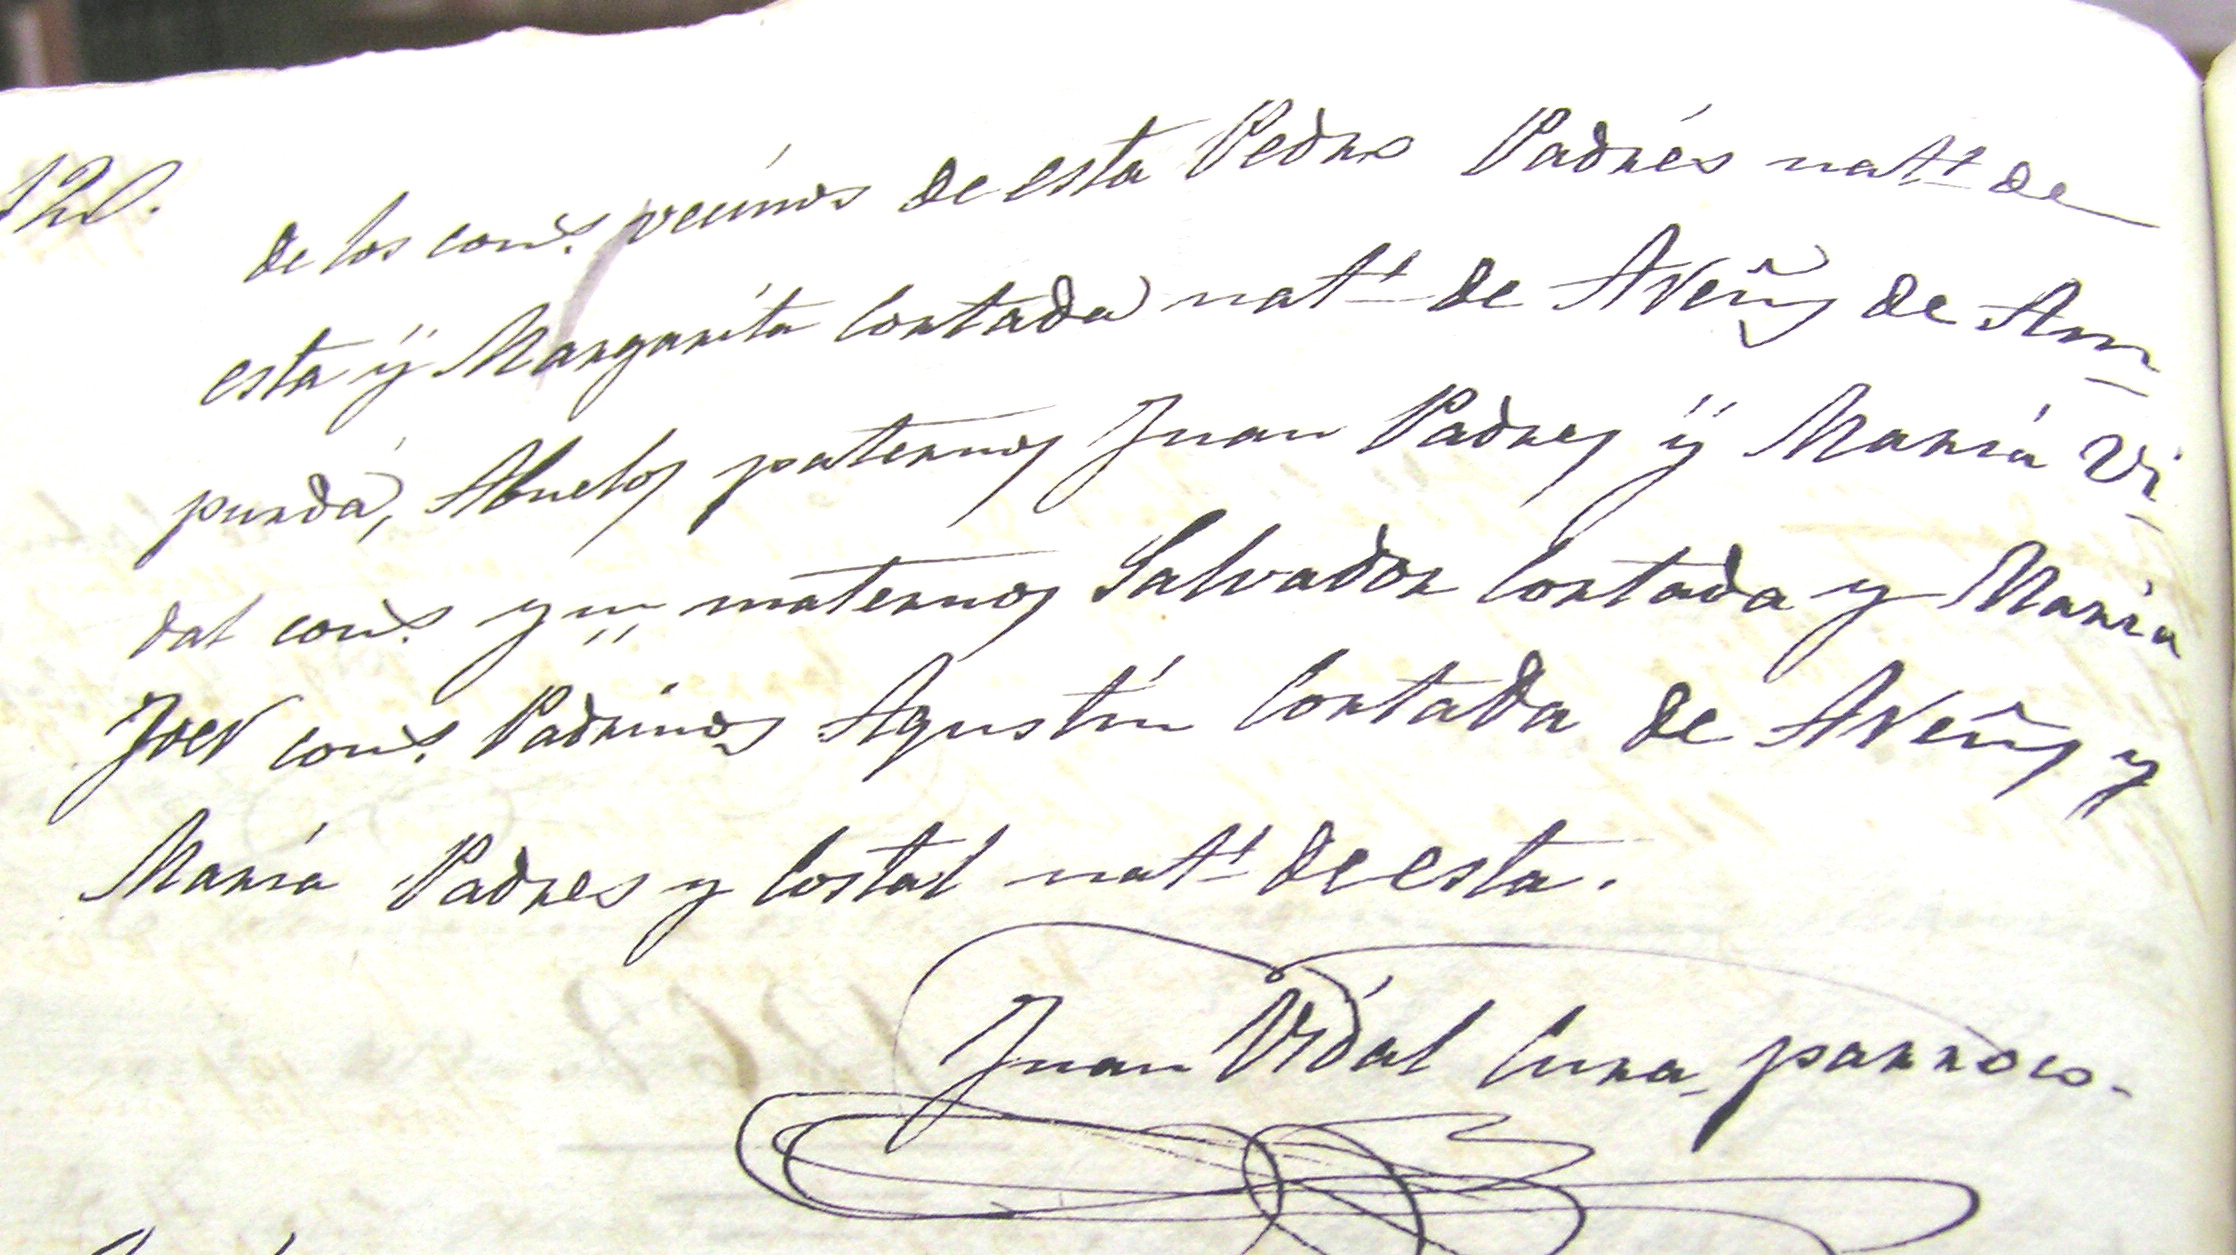 120.
de los cons. vecinos de esta Pedro Padrés natl. de
esta ÿ Margarita Cortada natl. de Aveñs de Am-
purdá, Abuelos paternos Juan Padres ÿ María Vi-
dal cons. y maternos Salvador Cortada y María
cons. Padrinos Agustín Cortada de Aveñs y
María Padres y Costal natl. de esta.
Juan Vidal Cura parroco.